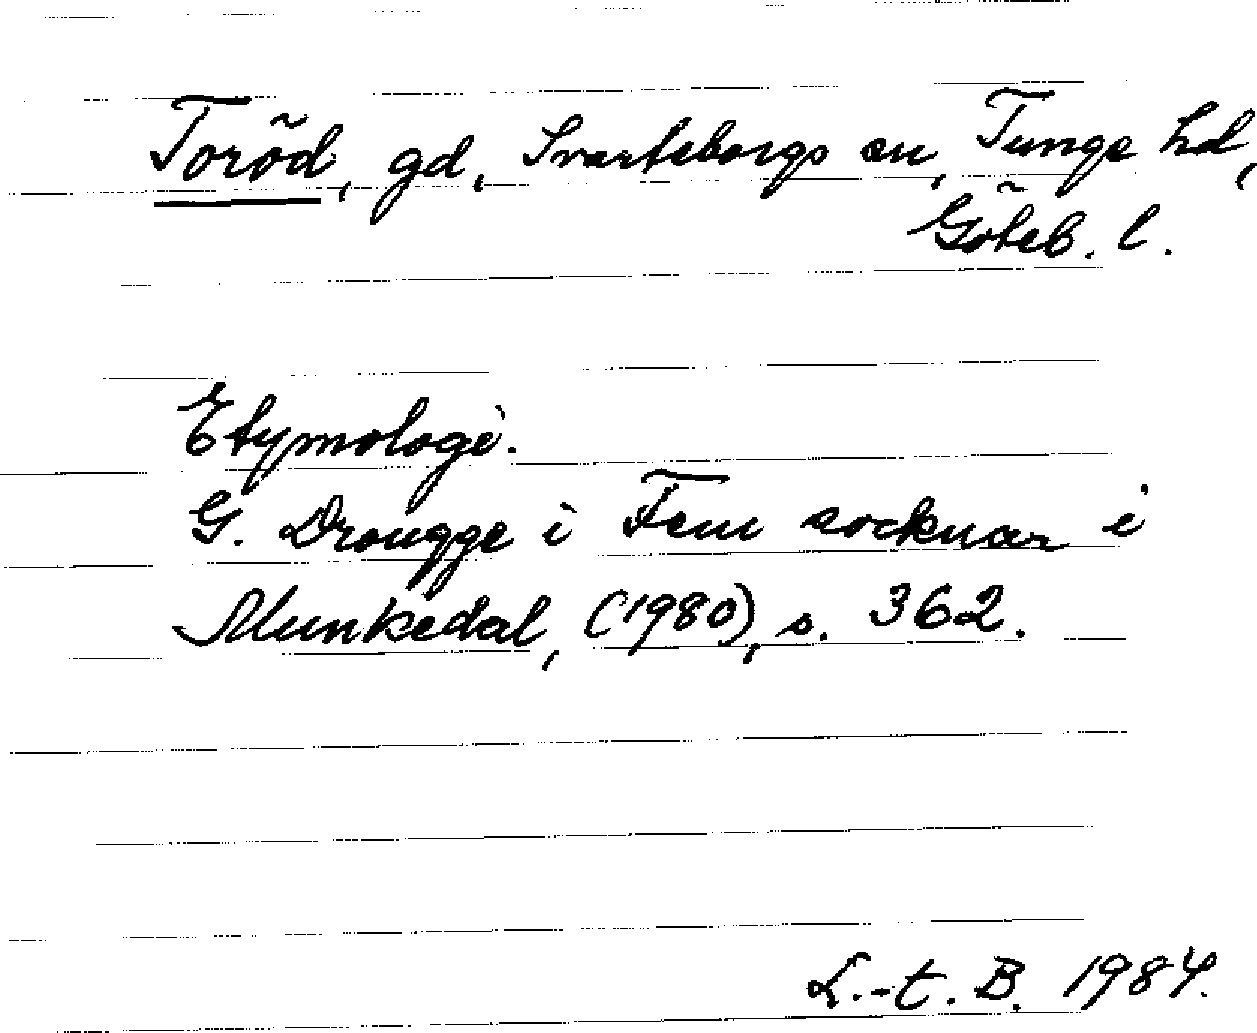 Toröd, gd, Svarteborgs sn, Tunge hd,
Göteb. l.
Etymologi.
G. Drougge i Fem socknar i
Munkedal, (1980), s. 362.
L.-t. B. 1984.